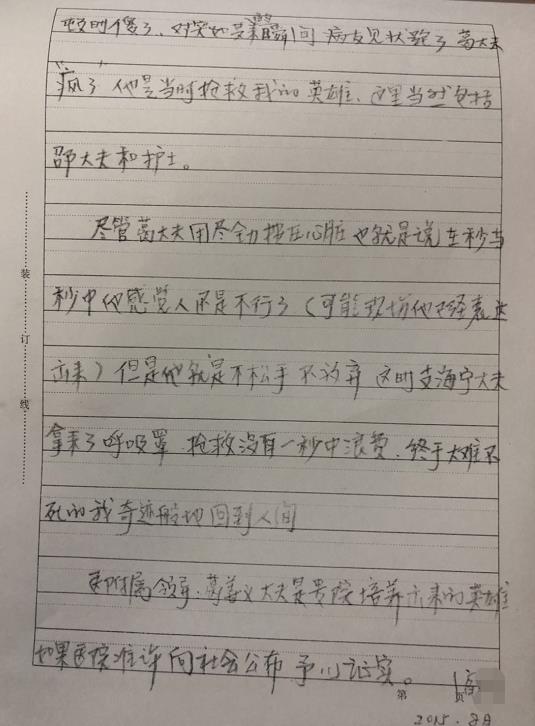 顿时傻了、对突如其来瞬间 病友见状跑了 葛大夫
"疯了" 他是当时抢救我的英雄、这里当然包括
邵大夫和护士。
尽管葛大夫用尽全力按在心脏 也就是说在秒与
秒中他感觉人还是不行了（可能现场他已经表达
出来）但是他就是不松手 不放弃 这时支海宁大夫
拿来了呼吸罩 抢救没有一秒中浪费、终于大难不
死的我奇迹般地回到人间
附属领导、葛义大夫是贵院培养出来的英雄
如果医院准许 向社会公布 予以证实。
装
订
线
第 页
2015.